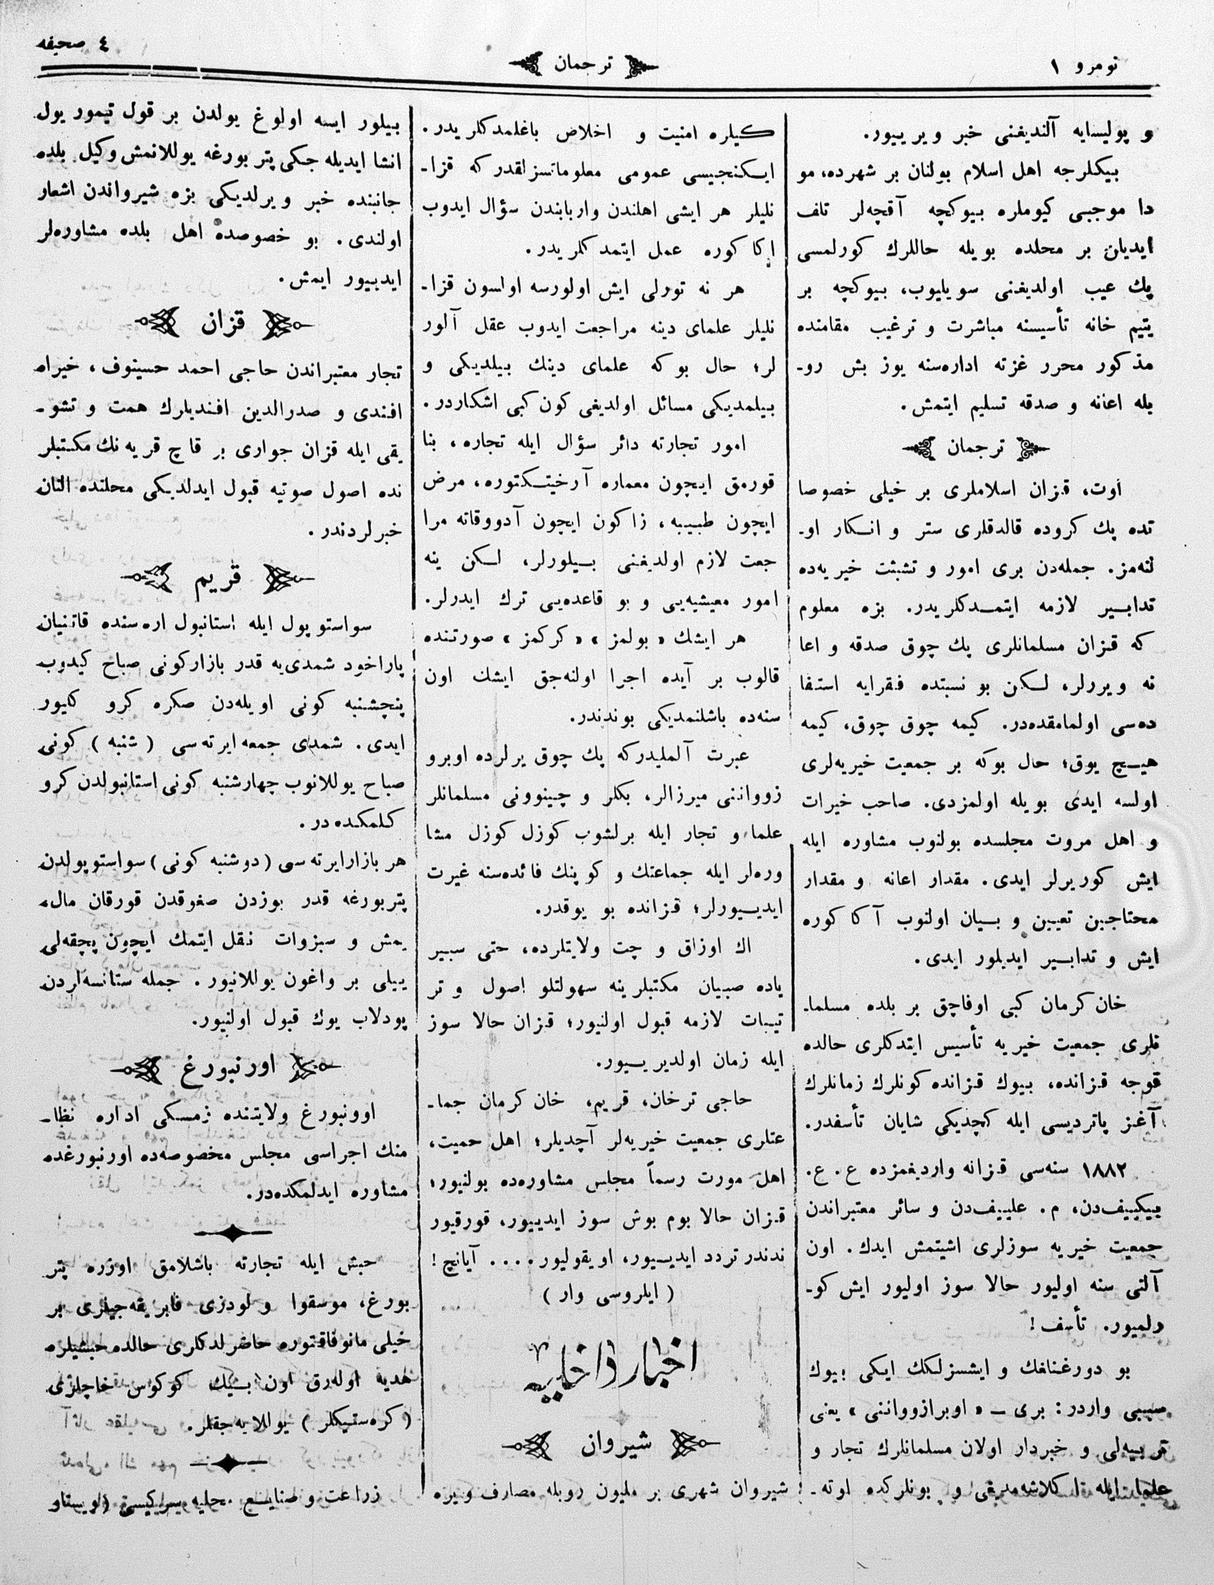 نومرو ١
ترجمان
٤ صحيفه
و پوليسايه آلنديغنى خبر و يريييور.
بيكلرجه اهل اسلام بولنان بر شهرده، مو
دا موجبى كيوملره بيوكچه آقچه‌لر تلف
ايديلن بر محلده بويله حاللرك كورلمسى
پك عيب اولديغنى سويليوب، بيوكچه بر
يتيم خانه تأسيسنه مباشرت و ترغيب مقامنده
مذكور محرر غزته اداره‌سنه يوز بش رو-
بله اعانه و صدقه تسليم ايتمش.
ترجمان
اوت، قزان اسلاملرى بر خيلى خصوصا
تده پك كروده قالدقلرى ستر و انكار او-
لنه‌مز. جمله‌دن برى امور و تشبثت خيريه‌ده
تدابير لازمه ايتمدكلريدر. بزه معلوم
كه قزان مسلمانلرى پك چوق صدقه و اعا
نه ويررلر، لكن بو نسبتده فقرايه استفا
ده‌سى اولمامقده‌در. كيمه چوق چوق، كيمه
هيچ يوق؛ حال بوكه بر جمعيت خيريه‌لرى
اولسه ايدى بويله اولمزدى. صاحب خيرات
و اهل مروت مجلسده بولنوب مشاوره ايله
ايش كوريرلر ايدى. مقدار اعانه و مقدار
محتاجين تعيين و بيان اولنوب آكا كوره
ايش و تدابير ايديلور ايدى.
خان كرمان كبى اوفاچق بر بلده مسلما-
نلرى جمعيت خيريه تأسيس ايتدكلرى حالده
قوجه قزانده، بيوك قزانده كونلرك زمانلرك
آغز پاترديسى ايله كچديكى شايان تأسفدر.
١٨٨٢ سنه‌سى قزانه وارديغمزده ع. ع.
بيكييف‌دن، م. علييف‌دن و سائر معتبراندن
جمعيت خيريه سوزلرى اشيتمش ايدك. اون
آلتى سنه اوليور حالا سوز اوليور ايش كو-
رلميور. تأسف!
بو دورغنلغك و ايشسزلكك ايكى بيوك
سببى واردر: برى — « اوبرازوواننى » يعنى
تربيه‌لى و خبردار اولان مسلمانلرك تجار و
علما ايله آكلاشه‌مديقى و بونلركده اوته-
كيلره امنيت و اخلاص باغلمدكلريدر.
ايكنجيسى عمومى معلوماتسزلقدركه قزا-
نليلر هر ايشى اهلندن واربابندن سؤال ايدوب
اكا كوره عمل ايتمدكلريدر.
هر نه تورلى ايش اولورسه اولسون قزا-
نليلر علماى دينه مراجعت ايدوب عقل آلور
لر؛ حال بوكه علماى دينك بيلديكى و
بيلمديكى مسائل اولديغى كون كبى اشكاردر.
امور تجارته دائر سؤال ايله تجاره، بنا
قورمق ايچون معماره آرخيتكتوره، مرض
ايچون طبيبه، زاكون ايچون آدووقاته مرا
جعت لازم اولديغنى بيلورلر، لكن ينه
امور معيشيه‌يى و بو قاعده‌يى ترك ايدرلر.
هر ايشك « بولمز » « كركمز » صورتنده
قالوب بر آيده اجرا اولنه‌جق ايشك اون
سنه‌ده باشلنمديكى بوندندر.
عبرت آلمليدركه پك چوق يرلرده اوبرو
زوواننى ميرزالر، بكلر و چينوونى مسلمانلر
علما و تجار ايله برلشوب كوزل كوزل مشا
وره‌لر ايله جماعتك و كوپنك فائده‌سنه غيرت
ايدييورلر؛ قزانده بو يوقدر.
اك اوزاق و چت ولايتلرده، حتى سيبير
ياده صبيان مكتبلرينه سهولتلو اصول و تر
تيبات لازمه قبول اولنيور؛ قزان حالا سوز
ايله زمان اولديرييور.
حاجى ترخان، قريم، خان كرمان جما-
عتلرى جمعيت خيريه‌لر آچديلر؛ اهل حميت،
اهل مورت رسماً مجلس مشاوره‌ده بولنيور؛
قزان حالا بوم بوش سوز ايدييور، قورقيور
ندندر تردد ايدييور، اويقوليور.... آيانچ!
( ايلروسى وار )
اخبار داخليه
شيروان
شيروان شهرى بر مليون روبله مصارف ويره
بيلور ايسه اولوغ يولدن بر قول تيمور يول
انشا ايديله جكى پتربورغه يوللانمش وكيل بلده
جانبنده خبر ويرلديكى بزه شيرواندن اشعار
اولندى. بو خصوصده اهل بلده مشاوره‌لر
ايدييور ايمش.
قزان
تجار معتبراندن حاجى احمد حسينوف، خيراه
افندى و صدرالدين افنديلرك همت و تشو-
يقى ايله قزان جوارى بر قاچ قريه نك مكتبلر
نده اصول صوتيه قبول ايدلديكى محلنده النان
خبرلردندر.
قريم
سواستوپول ايله استانبول اره‌سنده قاتنيان
پاراخود شمدى‌يه قدر بازاركونى صباح كيدوب
پنچشنبه كونى اويله‌دن صكره كرو كليور
ايدى. شمدى جمعه ايرته‌سى ( شنبه ) كونى
صباح يوللانوب چهارشنبه كونى استانبولدن كرو
كلمكده‌در.
هر بازارايرته‌سى ( دوشنبه كونى ) سواستوپولدن
پتربورغه قدر بوزدن صغوقدن قورقان مال،
يمش و سبزوات نقل ايتمك ايچون پچقه‌لى
ييلى بر واغون يوللانيور. جمله ستانسه‌لردن
پودلاب يوك قبول اولنيور.
اورنبورغ
اوونبورغ ولايتنده زمسكى اداره نظا-
منك اجراسى مجلس مخصوصه‌ده اورنبورغده
مشاوره ايدلمكده‌در.
حبش ايله تجارته باشلامق اوزره پتر
بورغ، موسقوا و لودزى فابريقه‌جيلرى بر
خيلى مانوفاقتوره حاضرلدكلرى حالده حبشيلره
هديه اوله‌رق اون بيك كوكوس خاچلرى
( كره‌ستيكلر ) يوللايه‌جقلر.
زراعت و صنايع محليه